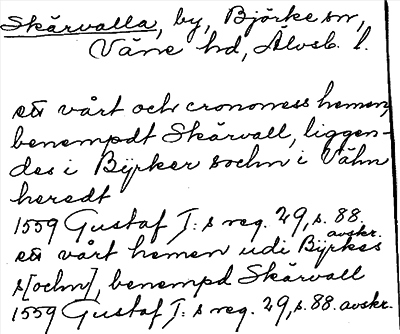 Skärvalla, by, Björke sn,
Väne hd, Älvsb. l.
ett vårt och cronones hemen,
benempdt Skärvall, liggen-
des i Bÿrker sochn i Vähn
heredt
1559 Gustaf I:s reg. 29, s. 88.
avskr.
ett vårt hemen udi Bÿrkes
s[ochn], benempd Skärvall
1559 Gustaf I:s reg. 29, s. 88. avskr.